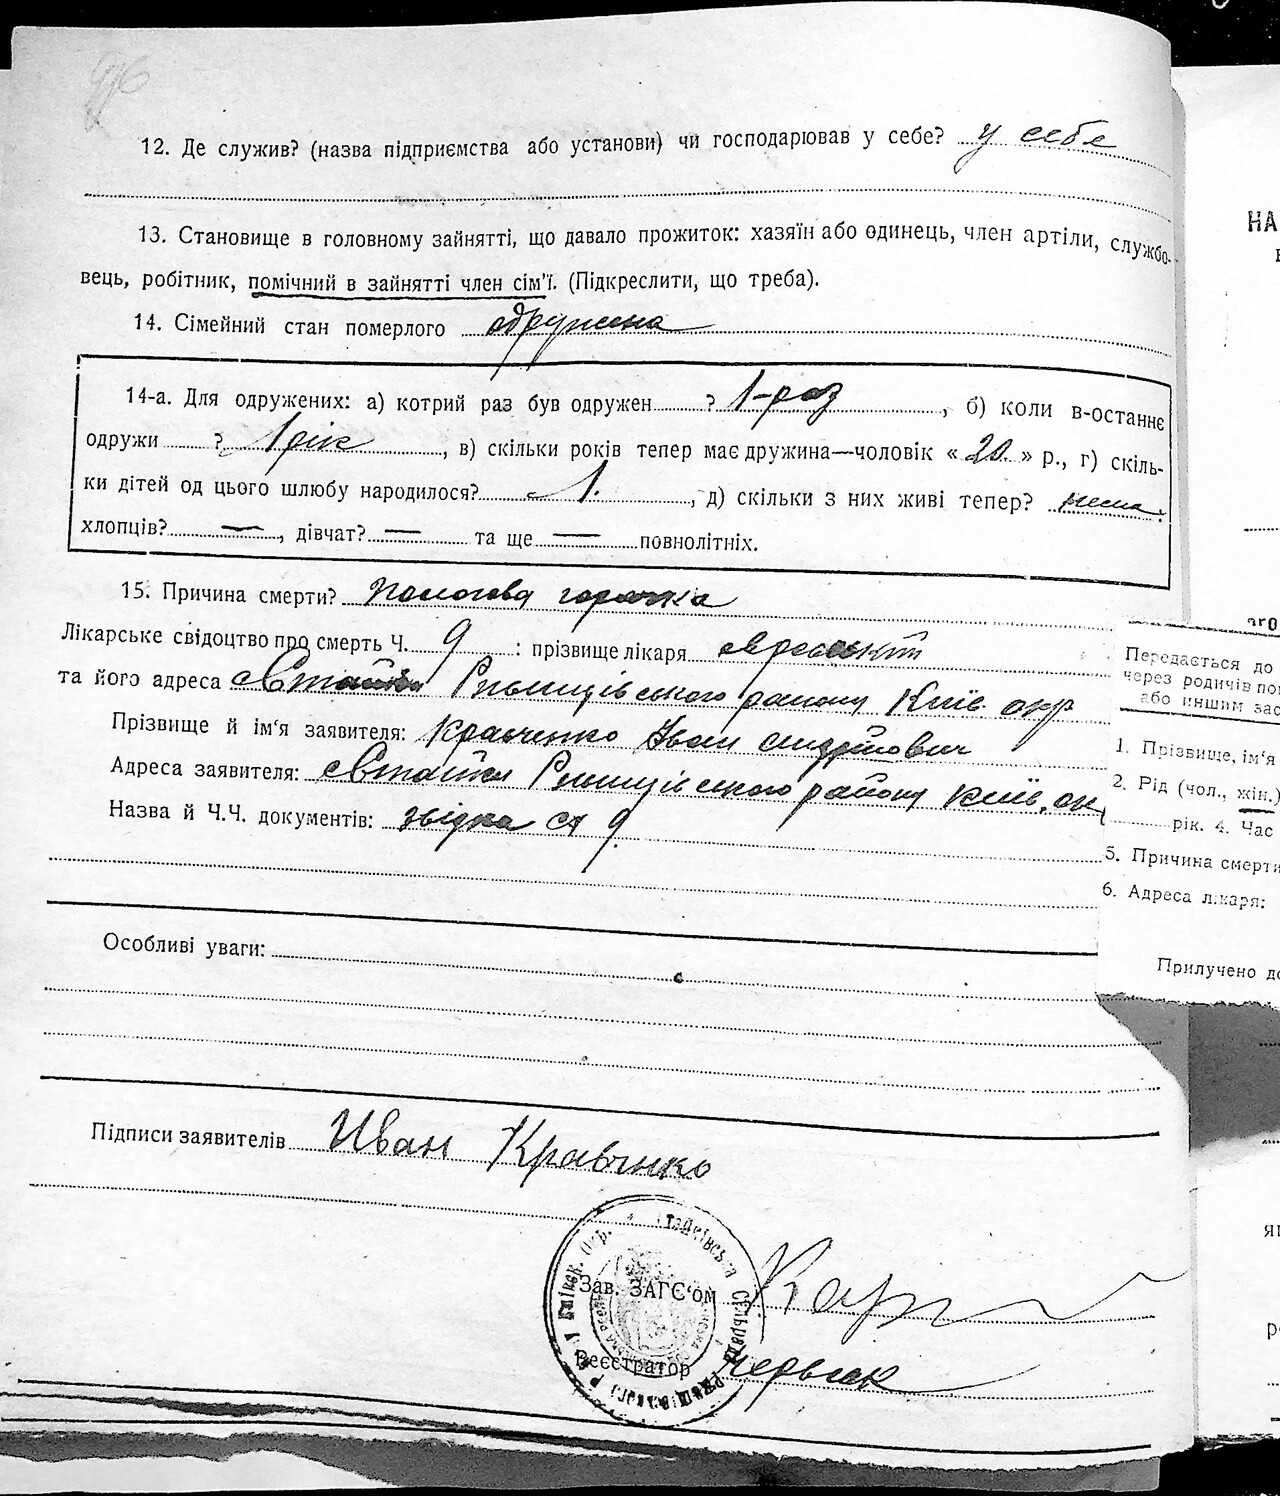 12. Де служив? (назва підприємства або установи) чи господарював у себе? у себе
13. Становище в головному зайнятті, що давало прожиток: хазяїн або одинець, член артіли, службо-
вець, робітник, помічний в зайнятті член сім'ї. (Підкреслити, що треба).
14. Сімейний стан померлого одружена
14-а. Для одружених: а) котрий раз був одружен ? 1-раз, б) коли в-останнє
одружи ? 1 рік, в) скільки років тепер має дружина—чоловік « 20 » р., г) скіль-
ки дітей од цього шлюбу народилося? 1., д) скільки з них живі тепер? нема.
хлопців? —, дівчат? — та ще — повнолітніх.
15. Причина смерти? Пологова горячка
Лікарське свідоцтво про смерть Ч. 9 : прізвище лікаря
та його адреса Ржищівського району Київ. окр
Прізвище й ім'я заявителя: Кравченко Іван
Адреса заявителя: Ржищівського району Київ. ок
Назва й Ч.Ч. документів: 9
Особливі уваги:
Підписи заявителів Иван Кравчнко
Зав. ЗАГС'ом
Реєстратор
НА
Передається до
через родичів по
або иншим зас
1. Прізвище, ім'я
2. Рід (чол., жін.)
рік. 4. Час
5. Причина смерти
6. Адреса лікаря:
Прилучено до